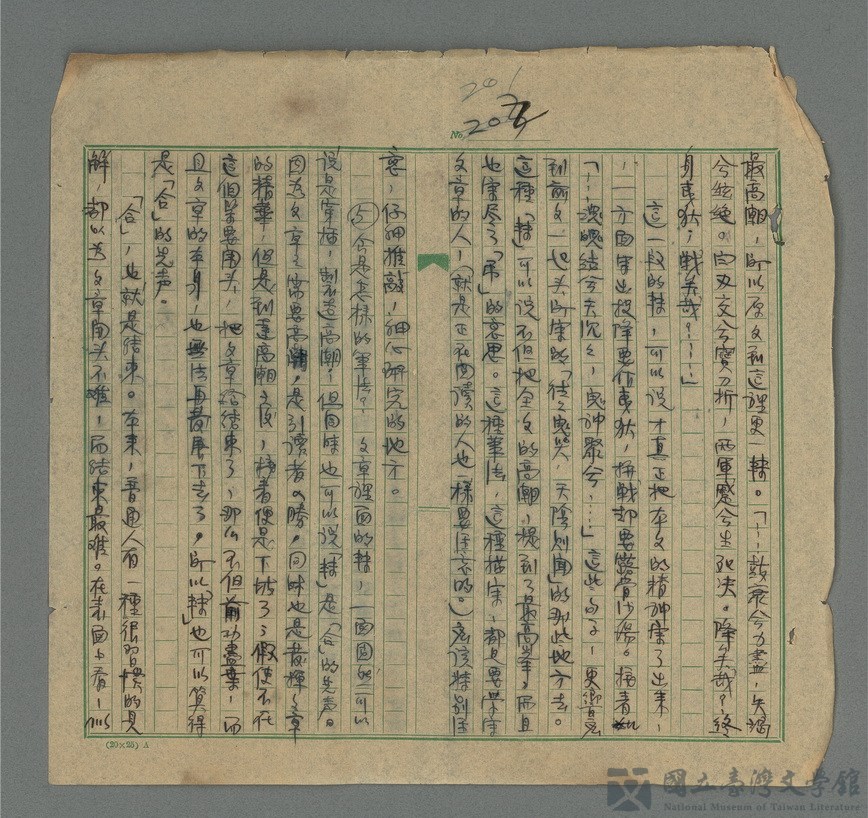 201
No. 20
最高潮，所以原文到這裡更一轉。「…鼓衰兮力盡，矢竭
兮弦絕。白刃交兮寶刀折，兩軍蹙兮生死決。降矣哉？終
身夷狄，戰矣哉？……」
這一段的轉，可以說才真正把本文的精神寫了出來，
一方面寫出投降要作夷狄，搏戰却要露骨沙場。接着
「…魂魄結兮天沉沉，鬼神聚兮……」這些句子，更響應
到前文一起頭所寫的「往往鬼哭，天陰則聞」的那些地方去。
這種「轉」可以說不但把全文的高潮，提到了最高峯，而且
也寫尽了「弔」的意思。這種筆法，這種描寫，都是要學寫
文章的人，（就是正在閱讀的人也一樣要注意的。）應該特別注
意，仔細推敲，細心研究的地方。
⑤合是怎樣的筆法？ 文章裡面的轉，一面固然可以
說是穿插，製造高潮，但同時也可以說「轉」是「合」的先聲。
因為文章之需要高潮，是引讀者入勝，同時也是發揮文章
的精華，但是到達高潮之後，接着便是下坡了，假使不在
這個緊要關头，把文章給結束了，那么不但前功盡棄，而
且文章的本身，也無法再發展下去了，所以「轉」也可以算得
是「合」的先声。
「合」，也就是結束。本來，普通人有一種很習慣的見
解，都以為文章開头不难，而結束最难。在表面上看，似
(20×25) A
國立臺灣文學館
National Museum of Taiwan Literature